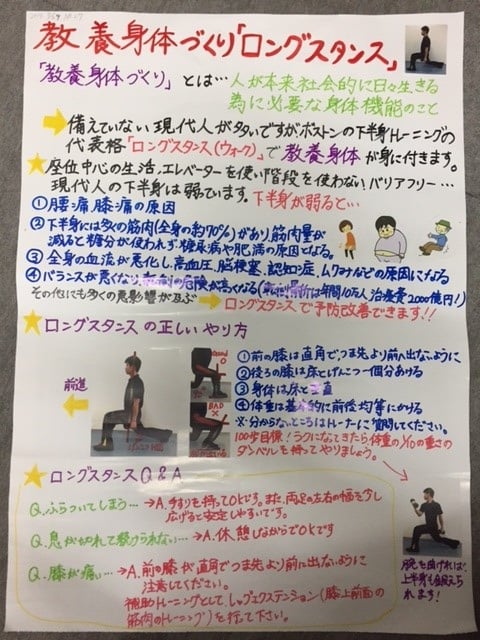 教養身体づくり「ロングスタンス」
「教養身体づくり」とは…人が本来社会的に日々生きる
為に必要な身体機能のこと
備えていない現代人が多いですがボストンの下半身トレーニングの
代表格「ロングスタンス(ウォーク)」で教養身体が身に付きます。
座位中心の生活、エレベーターを使い階段を使わない、バリアフリー…
現代人の下半身は弱ています。下半身が弱ると…
①腰痛、膝痛の原因
②下半身には多くの筋肉(全身の約70%)があり筋肉量が
減ると糖分が使われず糖尿病や肥満の原因となる。
③全身の血流が悪化し高血圧、脳梗塞、認知症、ムクみなどの原因になる
④バランスが悪くなり、転倒の危険が高くなる(転倒骨折は年間10万人 治療費2000億円!)
その他にも多くの悪影響が及ぶ→ロングスタンスで予防改善できます!!
ロングスタンスの正しいやり方
前進
GOOD
BAD
①前の膝は直角でつま先より前へ出ないように
②後ろの膝は床とげんこつ一個分あける
③身体は床と垂直
④体重は基本的に前後均等にかける
※分からないところはトレーナーに質問してください。
100歩目標!ラクになってきたら体重の1/10の重さの
ダンベルを持ってやりましょう。
ロングスタンスQ&A
Q.ふらついてしまう…→A.手すりを持ってOKです。また、両足の左右の幅を少し
広げると安定しやすいです。
Q.息が切れて続けられない…→A.休憩しながらでOKです
Q.膝が痛い…→A.前の膝が直角でつま先より前に出ないように
注意してください。
補助トレーニングとして、レッグエクステンション(膝上前面の
筋肉のトレーニング)を行って下さい。
腕を曲げれば、
上半身も鍛えら
れます!